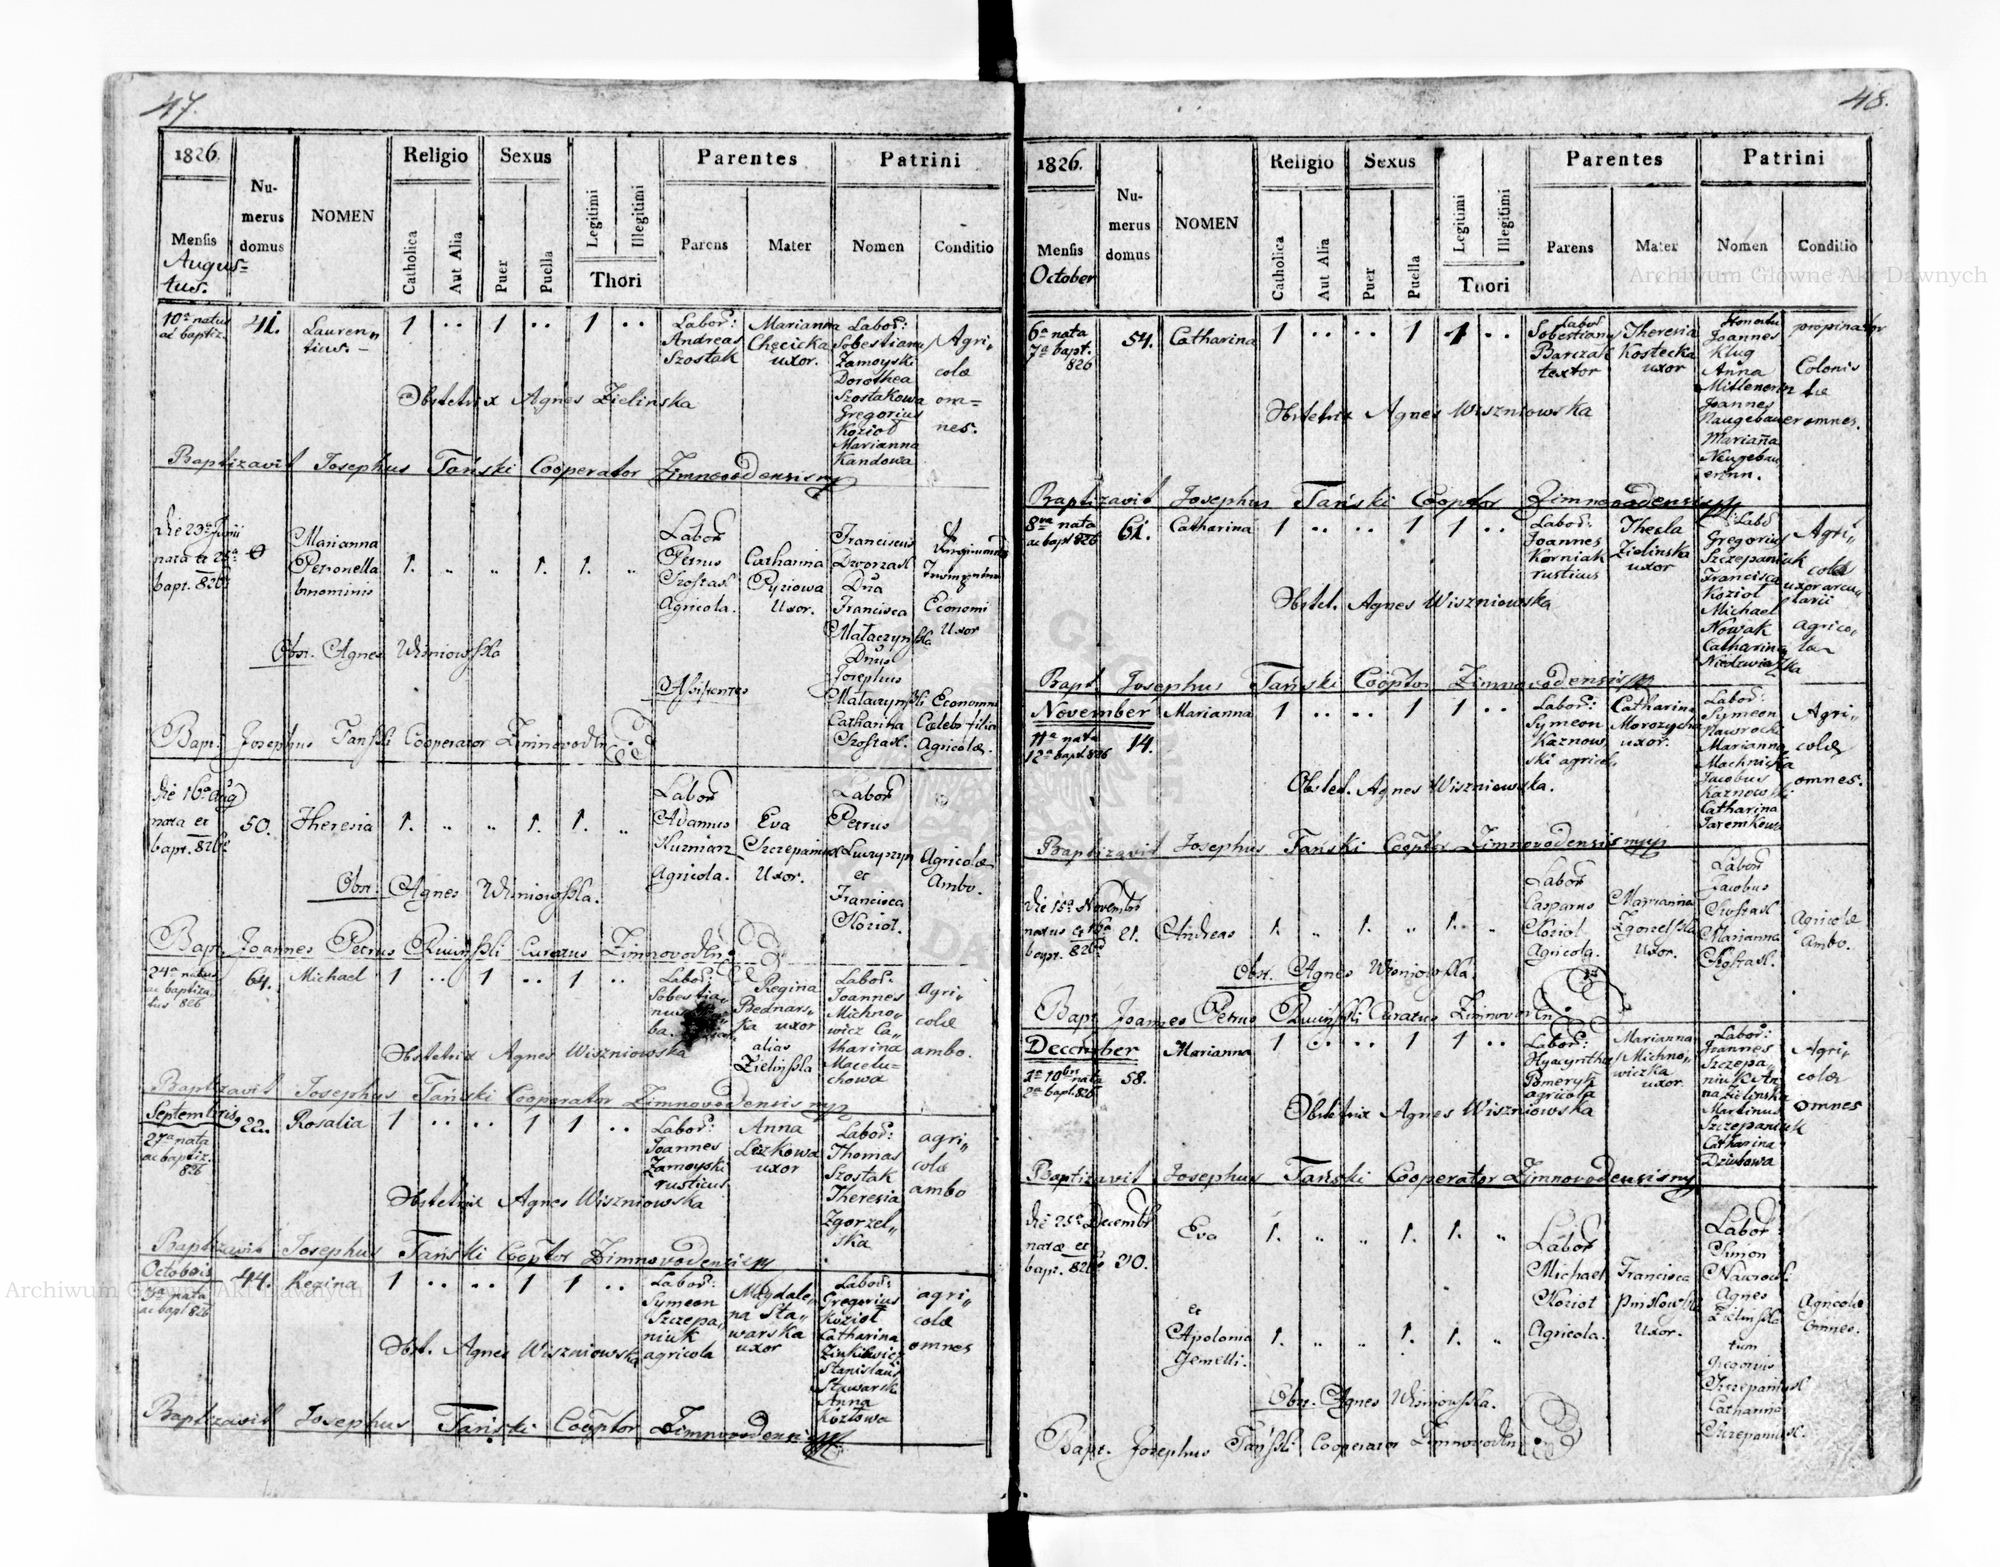 47.
1826.
Mensis
Augus=
tus.
Numerus domus
NOMEN
Religio
Catholica
Aut Alia
Sexus
Puer
Puella
Legitimi
Illegitimi
Thori
Parentes
Parens
Mater
Patrini
Nomen
Conditio
10a natus
ac baptiz.
41.
Lauren„
tius.
1 .. 1 .. 1 ..
Labor:
Andreas
Szostak
Marianna
Chęcicka
uxor.
Labor:
Sobestianus
Zamoyski
Dorothea
Szostakowa
Gregorius
Kozioł
Marianna
Kandowa
Agri„
colæ
om=
nes.
Obstetrix Agnes Zielinska
Baptizavit Josephus Tański Cooperator Zimnovodensis
die 23a Junii
nata et 25a
bapt. 826
Marianna
Petronella
binominis
1. .. .. 1. 1. ..
Labor
Petrus
Szostak
Agricola.
Catharina
Pyziowa
Uxor.
Franciscus
Dworzak
Dna
Francisca
Mataczyńska
Dnus
Josephus
Economi
Uxor
Obst. Agnes Wisniowska
Assistentes
Catharina
Szostak.
Caleb filia
Agricolæ.
Bapt. Josephus Tański Cooperator Zimnovodn
die 16a Aug
nata et
bapt. 826
50.
Theresia
1. .. .. 1. 1. ..
Labor
Adamus
Kuzniarz
Agricola.
Eva
Szczepaniuk
Uxor.
Labor
Petrus
et
Francisca
Kozioł.
Agricolæ
Ambo.
Obst. Agnes Wisniowska.
Bapt. Joannes Petrus Curatus Zimnovodn
24a natus
ac baptiza„
tus 826
64.
Michael
1 .. 1 .. 1 ..
Labor:
Sobestia„
Regina
Bednars„
ka uxor
alias
Zielińska
Labor:
Joannes
Michno„
wicz Ca„
tharina
Macelu„
chowa
agri„
colæ
ambo.
Obstetrix Agnes Wiszniowska
Baptizavit Josephus Tański Cooperator Zimnovodensis
Septembris
27a nata
ac baptiz.
826
22.
Rosalia
1 .. .. 1 1 ..
Labor:
Joannes
Zamoyski
rusticus
Anna
Lezkowa
uxor
Labor:
Thomas
Szostak
Theresia
Zgorzel„
ska
agri„
colæ
ambo
Obstetrix Agnes Wiszniowska
Baptizavit Josephus Tański Cooptor Zimnovodensis
Octobris
7a nata
ac bapt 826
44.
Regina
1 .. .. 1 1 ..
Labor:
Symeon
Szczepa„
niuk
agricola
Magdale„
na Sta„
warska
uxor
Labor:
Gregorius
Kozioł
Catharina
Zinkiewicz
Stanislaus
Stawarski
Anna
Kozłowa
agri„
colæ
omnes
Obst. Agnes Wiszniowska
Baptizavit Josephus Tański Cooptor Zimnovodensis
48.
1826.
Mensis
October
Numerus domus
NOMEN
Religio
Catholica
Aut Alia
Sexus
Puer
Puella
Legitimi
Illegitimi
Thori
Parentes
Parens
Mater
Patrini
Nomen
Conditio
6a nata
7a bapt.
826
54.
Catharina
1 .. .. 1 1 ..
Labor
Sobestianus
Barczak
textor
Theresia
Kostecka
uxor
Joannes
Klug
Anna
Mitlenerin
Joannes
Naugebauer
Marianna
Neugebau
erinn.
propinator
Colonis
tæ
omnes.
Obstetrix Agnes Wiszniowska
Baptizavit Josephus Tański Cooptor Zimnovodensis
8va nata
ac bapt 826
61.
Catharina
1 .. .. 1 1 ..
Labor:
Joannes
Korniak
rusticus
Thecla
Zielinska
uxor
Labor
Gregorius
Szczepaniuk
Francisca
Kozioł
Michael
Nowak
Catharina
Niedzwiadzka
Agri„
colæ
uxor arcu„
larii
agrico„
la
Obstet. Agnes Wiszniowska
Bapt Josephus Tański Cooptor Zimnovodensis
November
11a nata
12a bapt 826
14.
Marianna
1 .. .. 1 1 ..
Labor:
Symeon
Kaznow„
ski agricola
Catharina
Morozycka
uxor.
Labor:
Symeon
Nawrocki
Marianna
Machnicka
Jacobus
Kaznowski
Catharina
Jaremkowa
Agri„
colæ
omnes.
Obstet. Agnes Wiszniowska.
Baptizavit Josephus Tański Cooptor Zimnovodensis
die 15a Novembr
natus et 16a
bapt. 826
21.
Andreas
1. .. 1. .. 1. ..
Labor
Casparus
Kozioł
Agricola.
Marianna
Zgorzelska
Uxor.
Labor
Jacobus
Szostak
Marianna
Szostak.
Agricolæ
Ambo.
Obst. Agnes Wisniowska.
Bapt Joannes Petrus Curatus Zimnovodn
December
1a 10bris nata
2a bapt. 826
58.
Marianna
1 .. .. 1 1 ..
Labor:
Hyacynthus
Pomeryk
agricola
Marianna
Michno„
wiczka
uxor.
Labor:
Joannes
Szczepa„
niuk An„
na Zielinska
Martinus
Szczepaniuk
Catharina
Dziubowa
Agri„
colæ
omnes
Obstetrix Agnes Wiszniowska
Baptizavit Josephus Tański Cooperator Zimnovodensis
die 25a Decembr
natæ et
bapt. 826
Eva
1. .. .. 1. 1. ..
et
Apolonia
Gemelli.
1. .. .. 1. 1. ..
Labor
Michael
Kozioł
Agricola.
Francisca
Uxor.
Labor
Simon
Nawrocki
Agnes
Zielińska
tum
Gregorius
Szczepaniuk
Catharina
Szczepaniuk.
Agricolæ
Omnes.
Obst. Agnes Wisniowska.
Bapt. Josephus Tański Cooperator Zimnovodn
Archiwum Główne Akt Dawnych
Archiwum Główne Akt Dawnych